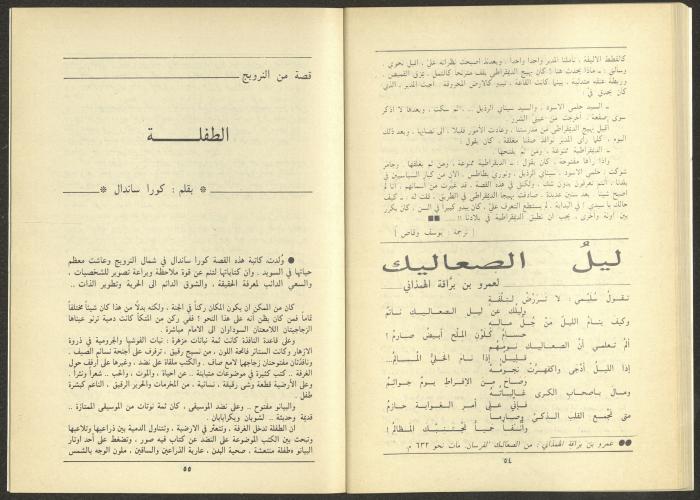 كالقطط الاليفة ، تأملنا المدير واحدا واحدا ، وبعدئذ اصبحت نظراته عليّ . اقبل نحوي ،
وسألني : ـ ماذا يحدث هنا ! كان بهيج الديمقراطي يقف مترنحا كالثمل ، ممزق القميص . .
وربطة عنقه متدلية . بينما كانت القاعة ، تبدو كالارض المحروقة . اجبت المدير ، الذي
كان يحدق في :
ـ السيد حلمي الاسود . والسيد سيناي الرذيل . . . ثم سكت . وبعدها لا اذكر
سوى صفعة ، اخرجت من عيني الشرر .
اقيل بهيج الديمقراطي من مدرستنا ، وعادت الامور قليلا ، الى نصابها . وبعد ذلك
اليوم ، كلما رأى المدير نوافذ صفنا مغلقة ، كان يقول :
ـ الديمقراطية ممنوعة ، ومن ثم يفتحها .
واذا رآها مفتوحة ، كان يقول : ـ الديمقراطية ممنوعة ، ومن ثم يغلقها . وجامز
شوكت ، حلمي الاسود ، سيناي الرذيل ، ونوري بطاطس . الآن من كبار السياسيين في
بلدنا . انتم تعرفون بدون شك ، ولكني في هذه القصة ، قد غيرت من أسمائهم . أنا لم
اصبح شيئا . بعد سنين عديدة . صادفت بهيجا الديمقراطي في الطريق . قلت له : ـ كيف
حالك يا سيدي ؟ في البداية ، لم يستطع التعرف عليّ . كان يبدو كبيرا في السن . كان يكرر
بين آونة وأخرى ، يجب ان نطبق الديمقراطية في بلادنا !! . . . ■■
[ ترجمة : يوسف وقاص ]
ليلُ الصعاليك
لعمرو بن برَّاقة الهَمَذاني
تقولُ سُلَيْمى : لا تَعَرَّضْ لِتَلْفَةٍ
وليلُكَ عن ليل الصعاليك نائمُ
وكيف ينامُ الليلَ من جُلُّ مالِهِ
حسامٌ كلَوْنِ الملْح أبيضُ صارمُ !
ألم تعلمي أنّ الصعاليك نومُهُم
قليلٌ إذا نام الخليُّ المُسالمُ . . .
إذا الليلُ أدْجَى واكفهرّت نجومُهُ
وصاح من الإفراط بومٌ جواثمُ
ومال بأصحابِ الكرى غالباتُهُ
فإني على أمر الغَواية حازمُ
متى تجمعِ القلبَ الذكيَّ وصارماً
وأنفاً حمياً تجتنبْكَ المظالمُ !
●● عمرو بن براقة الهمذاني : من الصعاليك الفرسان . مات نحو ٦٣٢ م.
٥٤
قصة من النرويج
الطفلة
* بقلم : كورا ساندال *
● وُلدت كاتبة هذه القصة كورا ساندال في شمال النرويج وعاشت معظم
حياتها في السويد . وان كتاباتها لتنم عن قوة ملاحظة وبراعة تصوير للشخصيات ،
والسعي الدائب لمعرفة الحقيقة ، والشوق الدائم الى الحرية وتطوير الذات . .
كان من الممكن ان يكون المكان ركناً في الجنة ، ولكنه بدلًا من هذا كان شيئاً مختلفاً
تماماً فمن كان يظن أنه على هذا النحو ؟ ففي ركن من المتكأ كانت دمية ترنو عيناها
الزجاجيتان اللامعتان السوداوان الى الامام مباشرة .
وعلى قاعدة النافذة كانت ثمة نباتات مزهرة : نبات الفوشيا والجرومية في ذروة
الازهار وكانت الستائر فاتحة اللون ، من نسيج رقيق ، ترفرف على أجنحة نسائم الصيف .
ونافذتان مفتوحتان زجاجها لامع صاف . والكتب ملقاة على نضد ، وغيرها على أرفف حول
الغرفة . . كتب كثيرة في موضوعات متباينة . . عن الحياة ، والموت ، والحب . . شعراً ونثراً .
وعلى الأرضية قطعة وشي رقيقة ، نسائية ، من المخرمات والحرير الرقيق . الناعم كبشرة
طفل .
والبيانو مفتوح . . وعلى نضد الموسيقى ، كان ثمة نوتات من الموسيقى الممتازة . .
قديمة وحديثة . . لشوبان وبكرابابان .
ان الطفلة تدخل الغرفة ، وتتعثر في الارضية ، وتتناول الدمية بين ذراعيها وتلاعبها
وتبحث بين الكتب الموضوعة على النضد عن كتاب فيه صور ، وتضغط على أحد أوتار
البيانو «طفلة منتعشة ، صحية البدن ، عارية الذراعين والساقين ، ملون الوجه بالشمس
٥٥